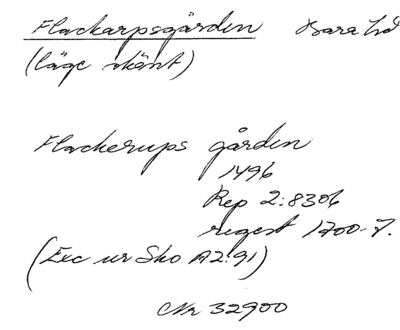 Flackarpsgården Bara hd
(läge okänt)
Flackerups gården
1496
Rep 2:8306
regest 1700-t.
(Exc ur Sko A2:91)
CNr 32900